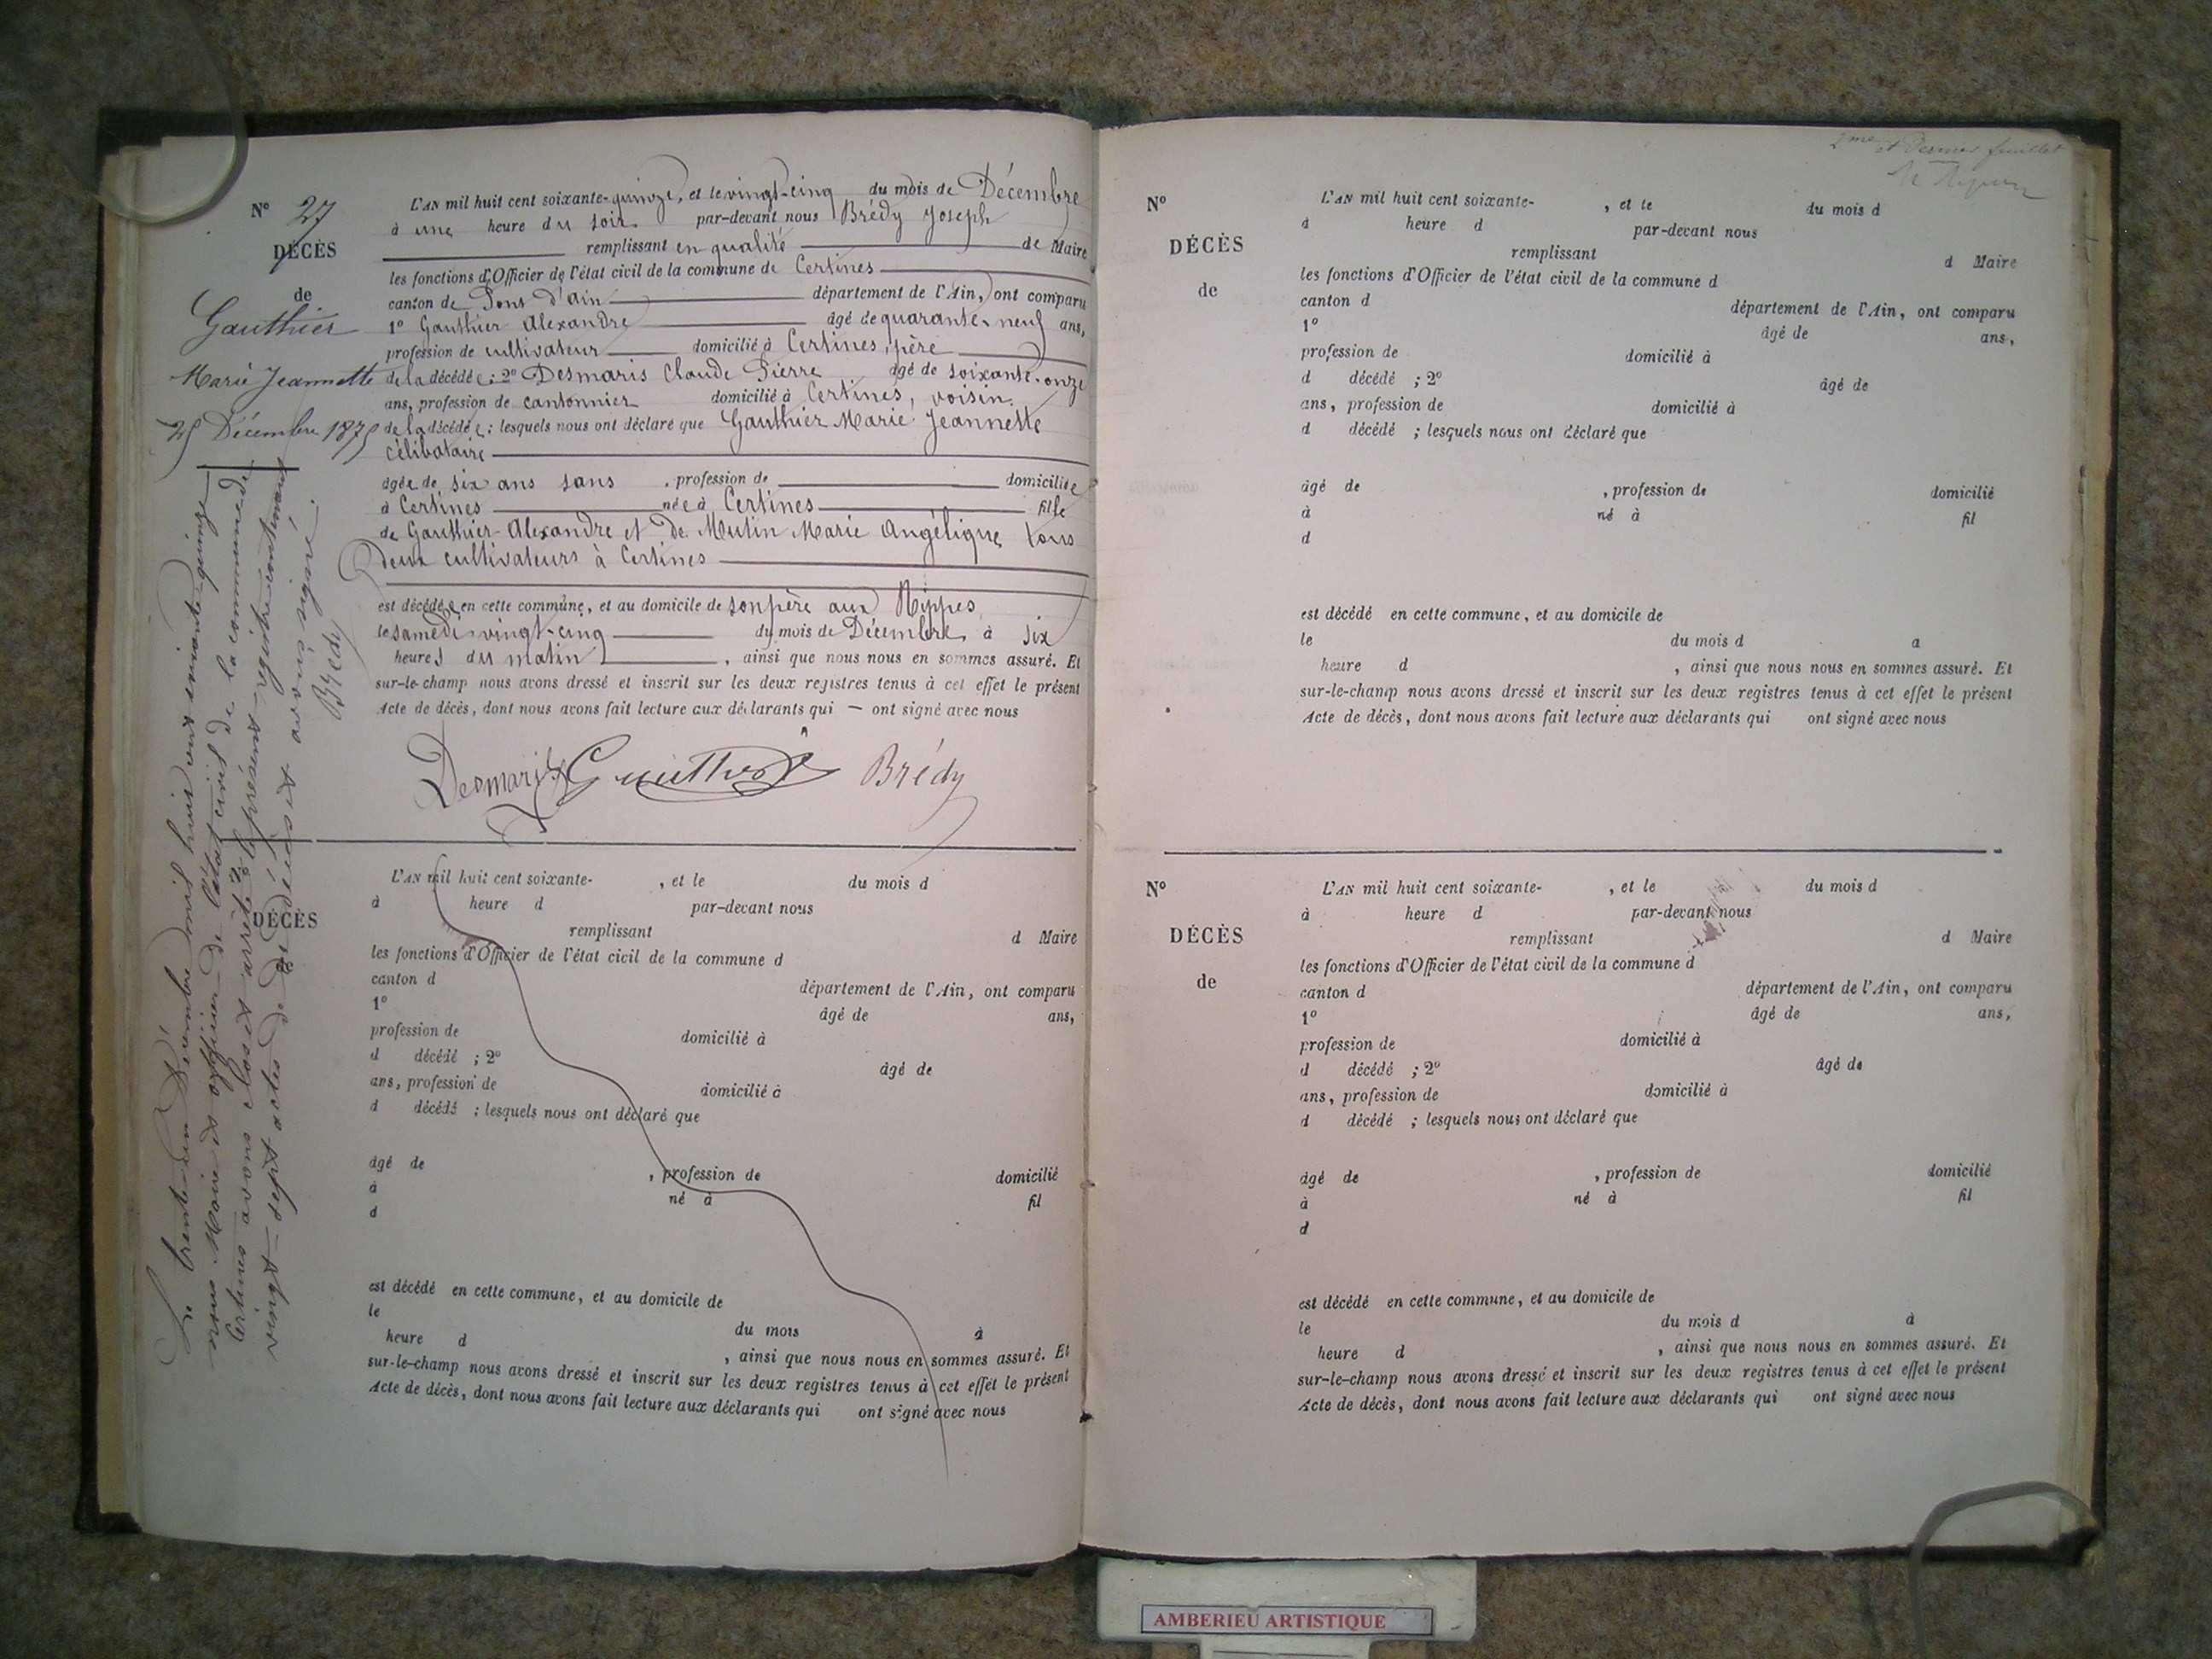 N° 27
DÉCÈS
de
Gauthier
Marie Jeannette
25 Décembre 1875
L'AN mil huit cent soixante-quinze, et le vingt-cinq du mois de Décembre
à une heure du soir par-devant nous Brédy Joseph
remplissant en qualité de Maire
les fonctions d'Officier de l'état civil de la commune de Certines
canton de Pont d'ain département de l'Ain, ont comparu
1° Gauthier Alexandre âgé de quarante-neuf ans,
profession de cultivateur domicilié à Certines, père
de la décédée ; 2° Desmaris Claude Pierre âgé de soixante-onze
ans, profession de cantonnier domicilié à Certines, voisin
de la décédée ; lesquels nous ont déclaré que Gauthier Marie Jeannette
célibataire
âgée de six ans sans , profession de domiciliée
à Certines née à Certines fille
de Gauthier Alexandre et de Mutin Marie Angélique tous
deux cultivateurs à Certines
est décédée en cette commune, et au domicile de son père aux Rippes
le samedi vingt-cinq du mois de Décembre à six
heures du matin , ainsi que nous nous en sommes assuré. Et
sur-le-champ nous avons dressé et inscrit sur les deux registres tenus à cet effet le présent
Acte de décès, dont nous avons fait lecture aux déclarants qui — ont signé avec nous
Desmaris Gauthier Brédy
Le trente-un Décembre mil huit cent soixante-quinze
nous Maire et officier de l'état civil de la commune de
Certines avons clos et arrêté le présent registre contenant
vingt-sept actes de décès et avons signé.
Brédy
DÉCÈS
L'AN mil huit cent soixante- , et le du mois d
à heure d par-devant nous
remplissant d Maire
les fonctions d'Officier de l'état civil de la commune d
canton d département de l'Ain, ont comparu
1° âgé de ans,
profession de domicilié à
d décédé ; 2° âgé de
ans, profession de domicilié à
d décédé ; lesquels nous ont déclaré que
âgé de , profession de domicilié
à né à fil
d
est décédé en cette commune, et au domicile de
le du mois à
heure d , ainsi que nous nous en sommes assuré. Et
sur-le-champ nous avons dressé et inscrit sur les deux registres tenus à cet effet le présent
Acte de décès, dont nous avons fait lecture aux déclarants qui ont signé avec nous
2me et dernier feuillet
N°
DÉCÈS
de
L'AN mil huit cent soixante- , et le du mois d
à heure d par-devant nous
remplissant d Maire
les fonctions d'Officier de l'état civil de la commune d
canton d département de l'Ain, ont comparu
1° âgé de ans,
profession de domicilié à
d décédé ; 2° âgé de
ans, profession de domicilié à
d décédé ; lesquels nous ont déclaré que
âgé de , profession de domicilié
à né à fil
d
est décédé en cette commune, et au domicile de
le du mois d a
heure d , ainsi que nous nous en sommes assuré. Et
sur-le-champ nous avons dressé et inscrit sur les deux registres tenus à cet effet le présent
Acte de décès, dont nous avons fait lecture aux déclarants qui ont signé avec nous
N°
DÉCÈS
de
L'AN mil huit cent soixante- , et le du mois d
à heure d par-devant nous
remplissant d Maire
les fonctions d'Officier de l'état civil de la commune d
canton d département de l'Ain, ont comparu
1° âgé de ans,
profession de domicilié à
d décédé ; 2° âgé de
ans, profession de domicilié à
d décédé ; lesquels nous ont déclaré que
âgé de , profession de domicilié
à né à fil
d
est décédé en cette commune, et au domicile de
le du mois d à
heure d , ainsi que nous nous en sommes assuré. Et
sur-le-champ nous avons dressé et inscrit sur les deux registres tenus à cet effet le présent
Acte de décès, dont nous avons fait lecture aux déclarants qui ont signé avec nous
AMBERIEU ARTISTIQUE